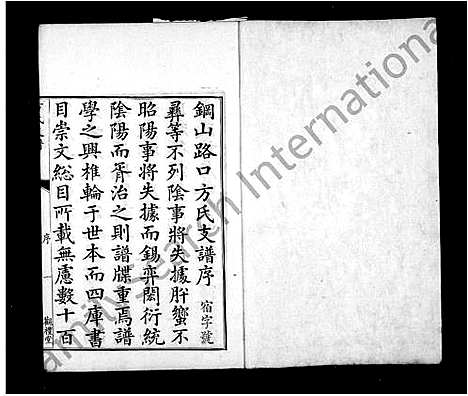 鋼山路口方氏支譜序
宿字號
彞等不列陰事將失據肸蠁不
昭陽事將失據而錫弈閎衍統
陰陽而胥治之則譜牒重焉譜
學之興椎輪于世本而四庫書
目崇文總目所載無慮數十百
序
一
觀禮堂
FamilySearch International